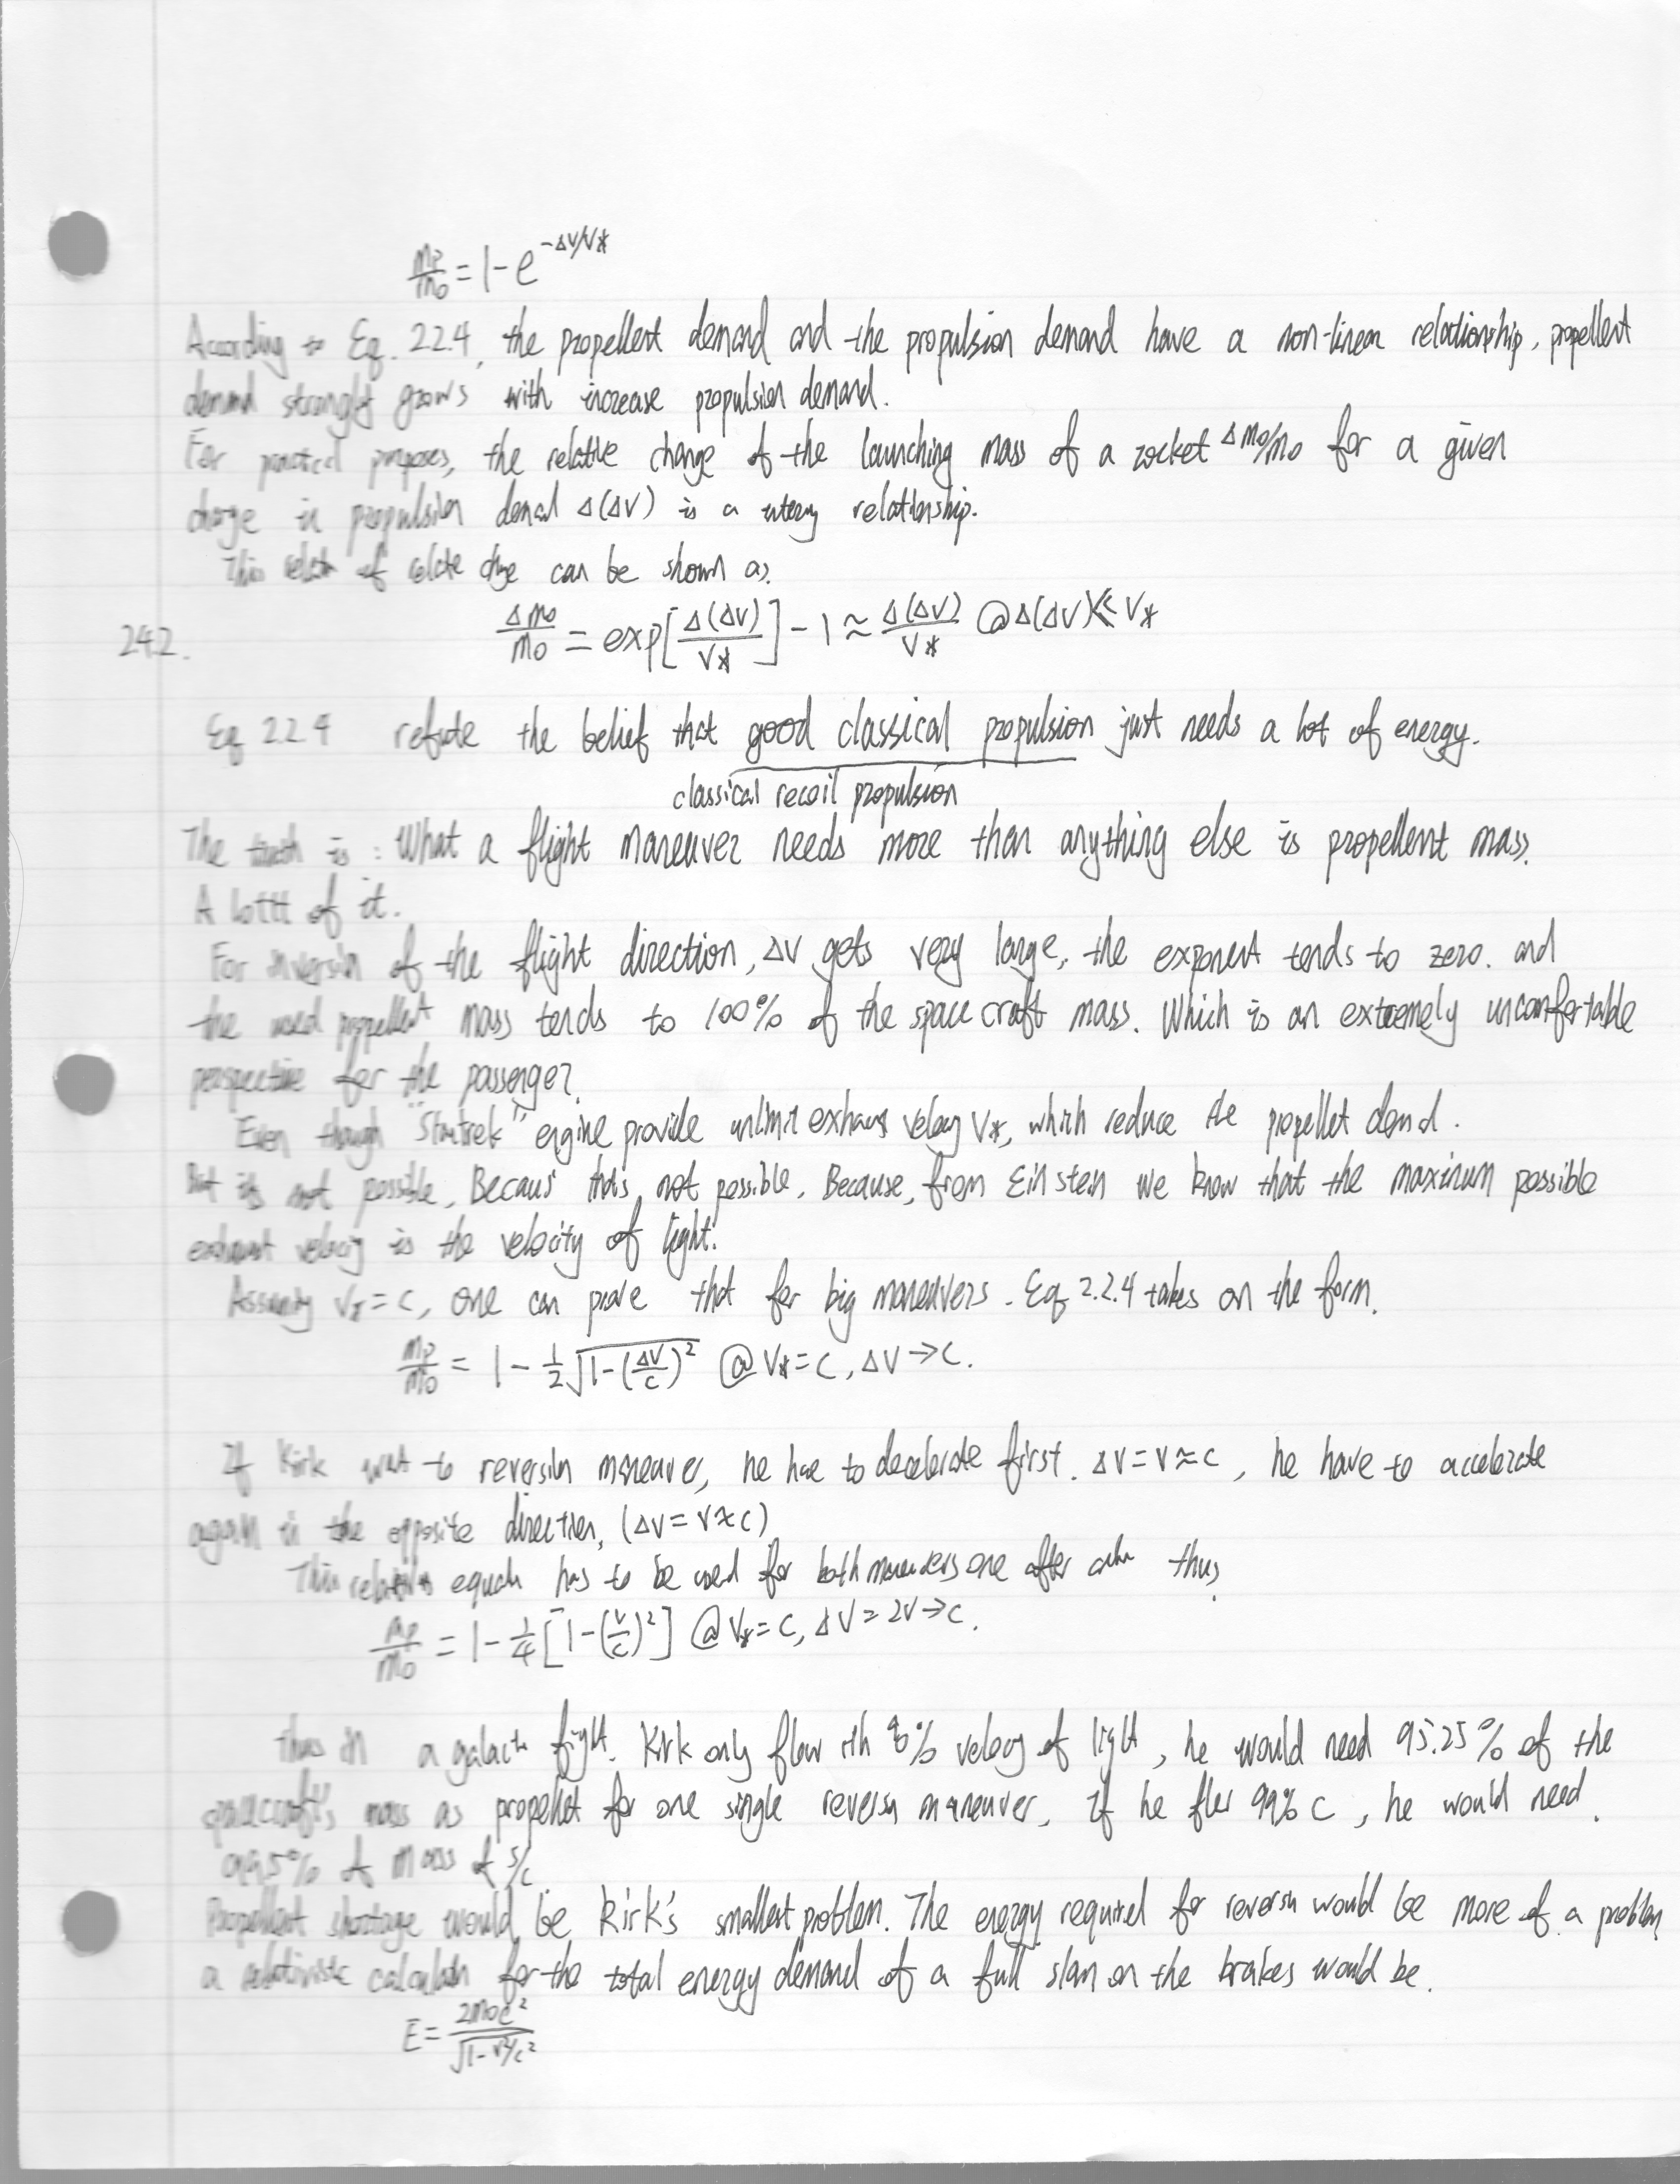 mp/m0 = 1 - e^(-ΔV/V*)
According to Eq. 2.2.4, the propellent demand and the propulsion demand have a non-linear relationship, propellent
demand strongly grows with increase propulsion demand.
For practical purposes, the relative change of the launching mass of a rocket Δm0/m0 for a given
change in propulsion demand Δ(ΔV) is a relationship.
This of can be shown as
2.4.2. Δm0/m0 = exp[Δ(ΔV)/V*] - 1 ≈ Δ(ΔV)/V* @Δ(ΔV)≪V*
Eq 2.2.4 refute the belief that good classical propulsion just needs a lot of energy.
classical recoil propulsion
The truth is : What a flight maneuver needs more than anything else is propellent mass.
A lottt of it.
For inversin of the flight direction, ΔV gets very large, the exponent tends to zero. and
the used propellent mass tends to 100% of the space craft mass. Which is an extremely uncomfortable
perspective for the passenger.
Even though "Startrek" engine provide unlimit exhaust velocity V*, which reduce the propellet demand.
But its not possible, Becaus thats not possible. Because, from Einstein we know that the maximum possible
exhaust velocity is the velocity of light.
Assuming V* = c, one can prove that for big maneuvers. Eq 2.2.4 takes on the form.
mp/m0 = 1 - 1/2 √(1-(ΔV/c)²) @ V*=c, ΔV→c.
If Kirk want to reversin maneaver, he hae to decelerate first. ΔV = V ≈ c, he have to accelerate
again in the opposite direction, (ΔV = V ≈ c)
This equath has to be used for both maneuvers one after thus
mp/m0 = 1 - 1/4 [1-(v/c)²] @ V*=c, ΔV = 2V→c.
thus in a galact fight. Kirk only flew % velocity of light, he would need 95.25% of the
spacecraft's mass as propellet for one single reversn maneuver, If he flew 99% c, he would need
99.5% of mass of s/c.
Propellant shortage would be Kirk's smallest problem. The energy required for reversn would be more of a problem
a relativistic calculatn for the total energy demand of a full slam on the brakes would be.
E = 2m0c²/√(1-v²/c²)